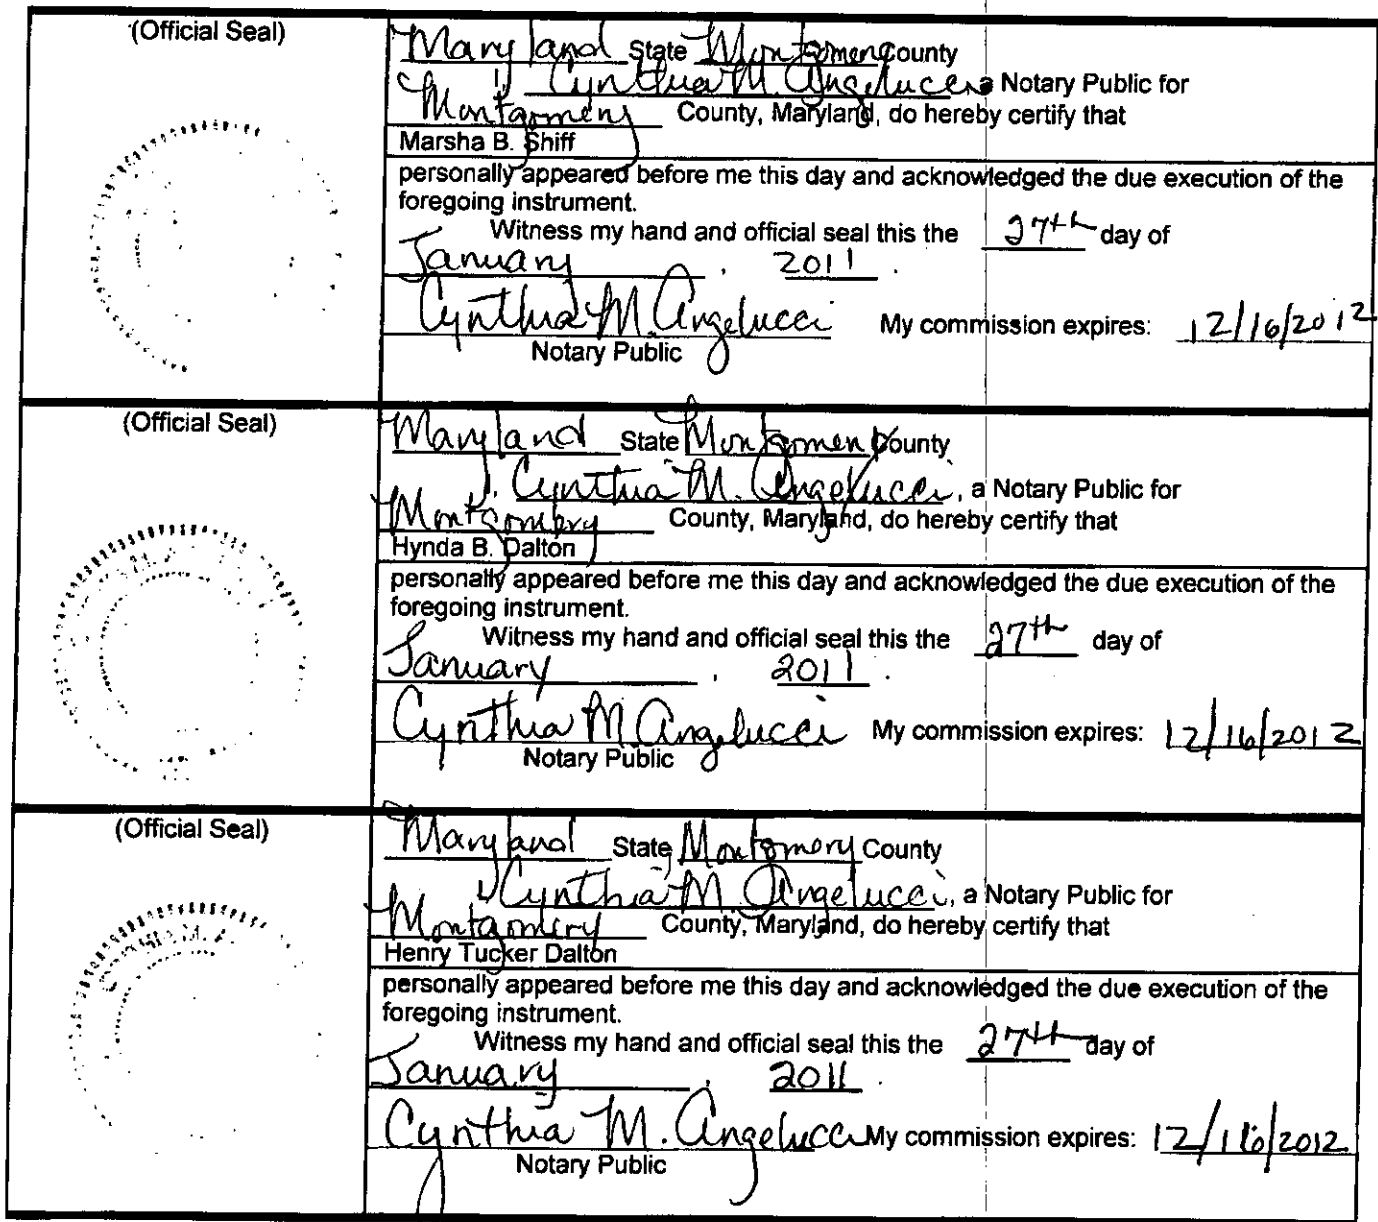 (Official Seal)
Maryland State Montgomery County
I, Cynthia M. Angelucci, a Notary Public for
Montgomery County, Maryland, do hereby certify that
Marsha B. Shiff
personally appeared before me this day and acknowledged the due execution of the
foregoing instrument.
Witness my hand and official seal this the 27th day of
January, 2011.
Cynthia M. Angelucci My commission expires: 12/16/2012
Notary Public
(Official Seal)
Maryland State Montgomery County
I, Cynthia M. Angelucci, a Notary Public for
Montgomery County, Maryland, do hereby certify that
Hynda B. Dalton
personally appeared before me this day and acknowledged the due execution of the
foregoing instrument.
Witness my hand and official seal this the 27th day of
January, 2011.
Cynthia M. Angelucci My commission expires: 12/16/2012
Notary Public
(Official Seal)
Maryland State Montgomery County
I, Cynthia M. Angelucci, a Notary Public for
Montgomery County, Maryland, do hereby certify that
Henry Tucker Dalton
personally appeared before me this day and acknowledged the due execution of the
foregoing instrument.
Witness my hand and official seal this the 27th day of
January, 2011.
Cynthia M. Angelucci My commission expires: 12/16/2012
Notary Public